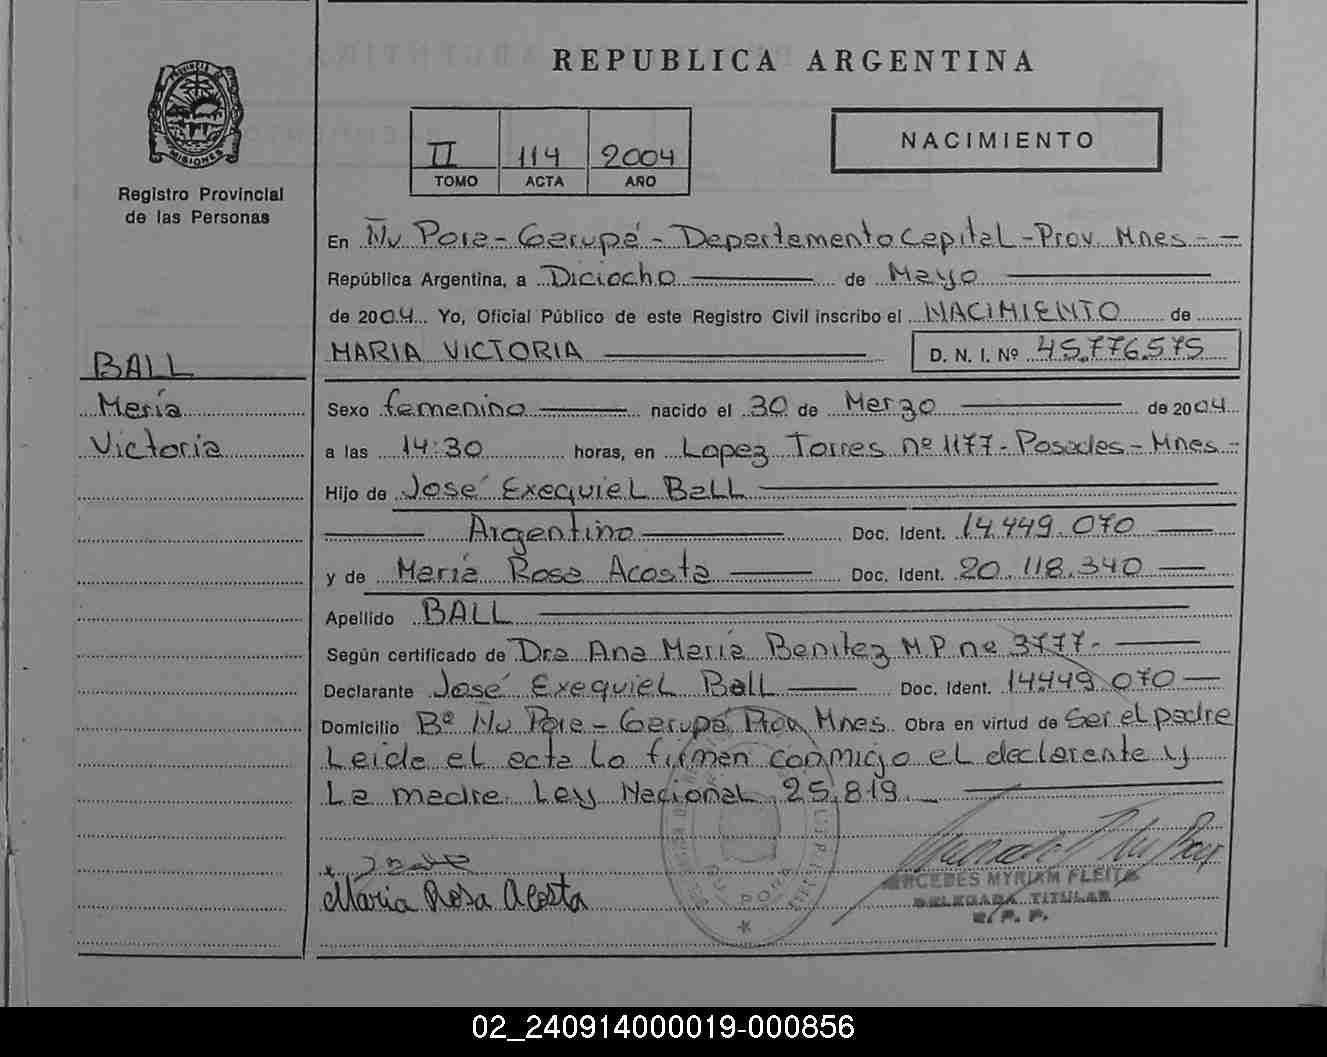 REPUBLICA ARGENTINA
PROVINCIA DE
MISIONES
Registro Provincial
de las Personas
II 114 2004
TOMO ACTA AÑO
NACIMIENTO
En Ñu Pora - Garupá - Departamento Capital - Prov. Mnes - -
República Argentina, a Diciocho de Mayo
de 2004 Yo, Oficial Público de este Registro Civil inscribo el NACIMIENTO de
MARIA VICTORIA D. N. I. Nº 45.776.575
BALL
María
Victoria
Sexo femenino nacido el 30 de Marzo de 2004
a las 14:30 horas, en Lopez Torres nº 1177 - Posadas - Mnes -
Hijo de José Exequiel Ball
Argentino Doc. Ident. 14.449.070
y de María Rosa Acosta Doc. Ident. 20.118.340
Apellido BALL
Según certificado de Dra Ana María Benitez M.P nº 3777-
Declarante José Exequiel Ball Doc. Ident. 14.449.070
Domicilio Bº Ñu Pora - Garupá Prov Mnes. Obra en virtud de Ser el padre
Leida el acta la firman conmigo el declarante y
La madre. Ley Nacional 25.819.
Maria Rosa Acosta
ÑU PORA
MERCEDES MYRIAM FLEITA
DELEGADA TITULAR
R. P. P.
02_240914000019-000856